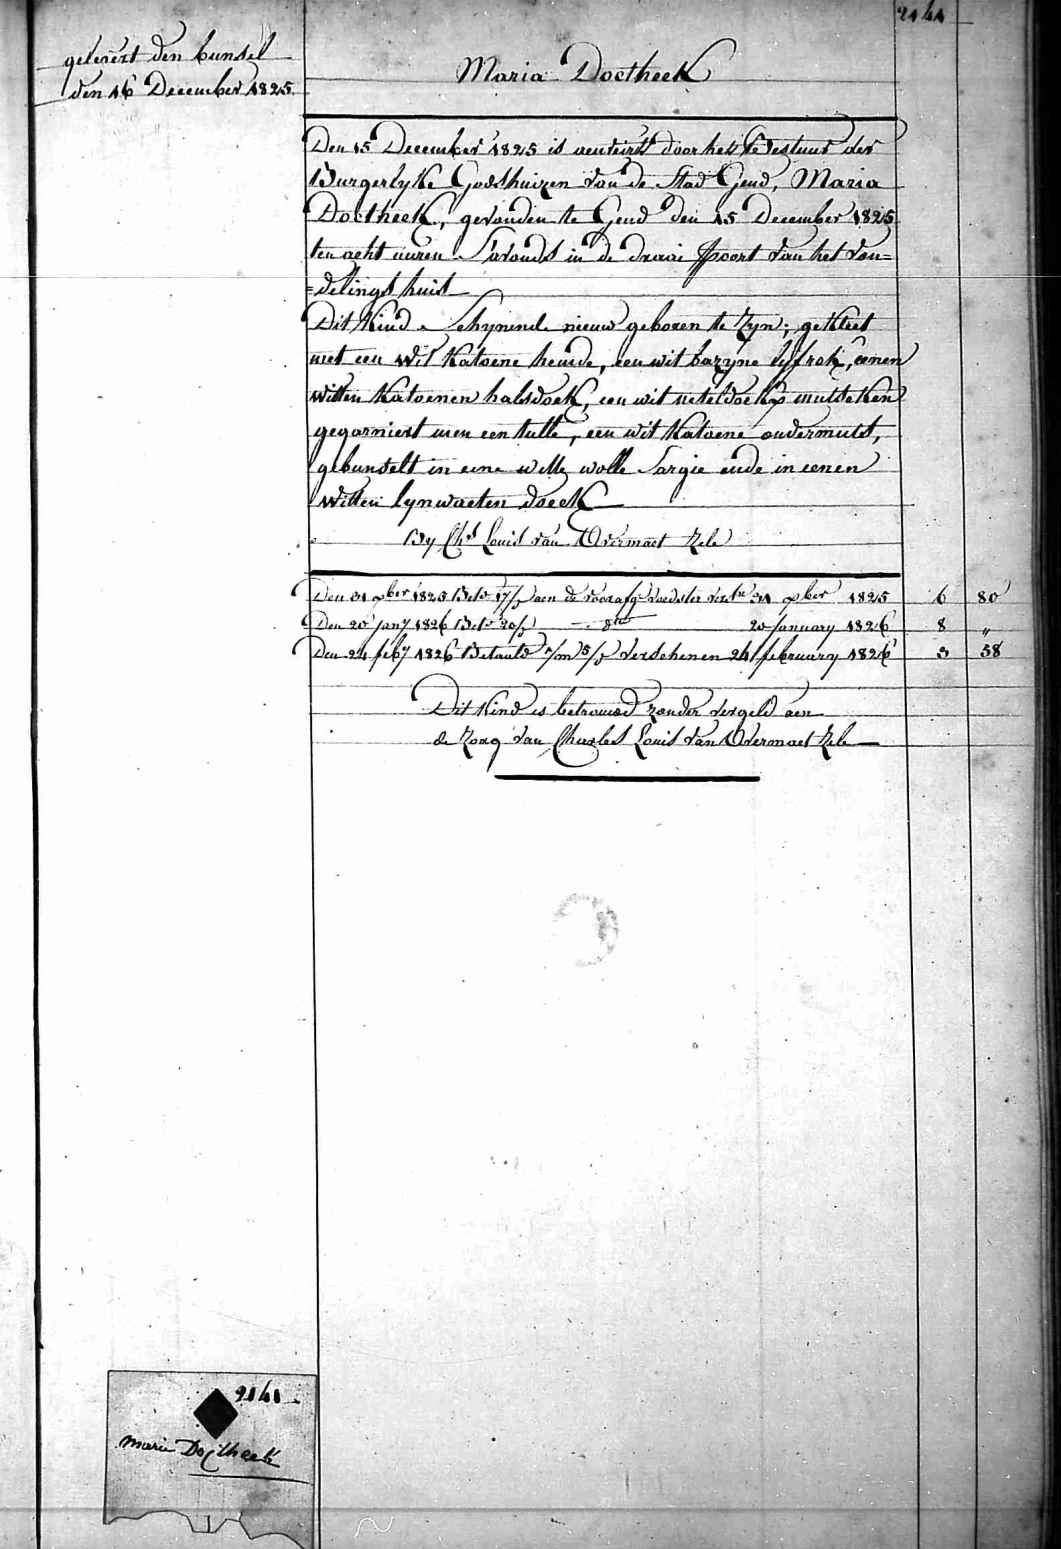 2141
gelevert den bunsel
den 16 December 1825.
Maria Doctheek
Den 15 December 1825 is aenveirt door het Bestuur der
Burgerlyke Godshuizen van de Stad Gend, Maria
Doctheek, gevonden te Gend den 15 December 1825
ten acht uuren S'avonds in de draai Poort van het von=
=delings huis
Dit Kind Schynende nieuw geboren te Zyn; gekleet
met een wit Katoene hemde, een wit bazyne lyfrok, eenen
witten Katoenen halsdoek, een wit neteldoek mutseken
gegarniert men een tulle, een wit Katoene ondermuts,
gebunselt in eene witte wolle Sargie ende in eenen
witten lynwaeten doek
By Chs Louis van Overmaet Zele
Den 31 xber 1825 Bet 17/ aen de voorafg. voedster versch 31 xber 1825 6 80
Den 20 Jany 1826 Bet 20/ — dto 20 January 1826 8 "
Den 24 feby 1826 Betaald /m 5/ verschenen 24 february 1826 3 58
Dit Kind is betrouwd zonder vergeld aen
de zorg van Charles Louis van Overmaet Zele
2141
Marie Doctheek